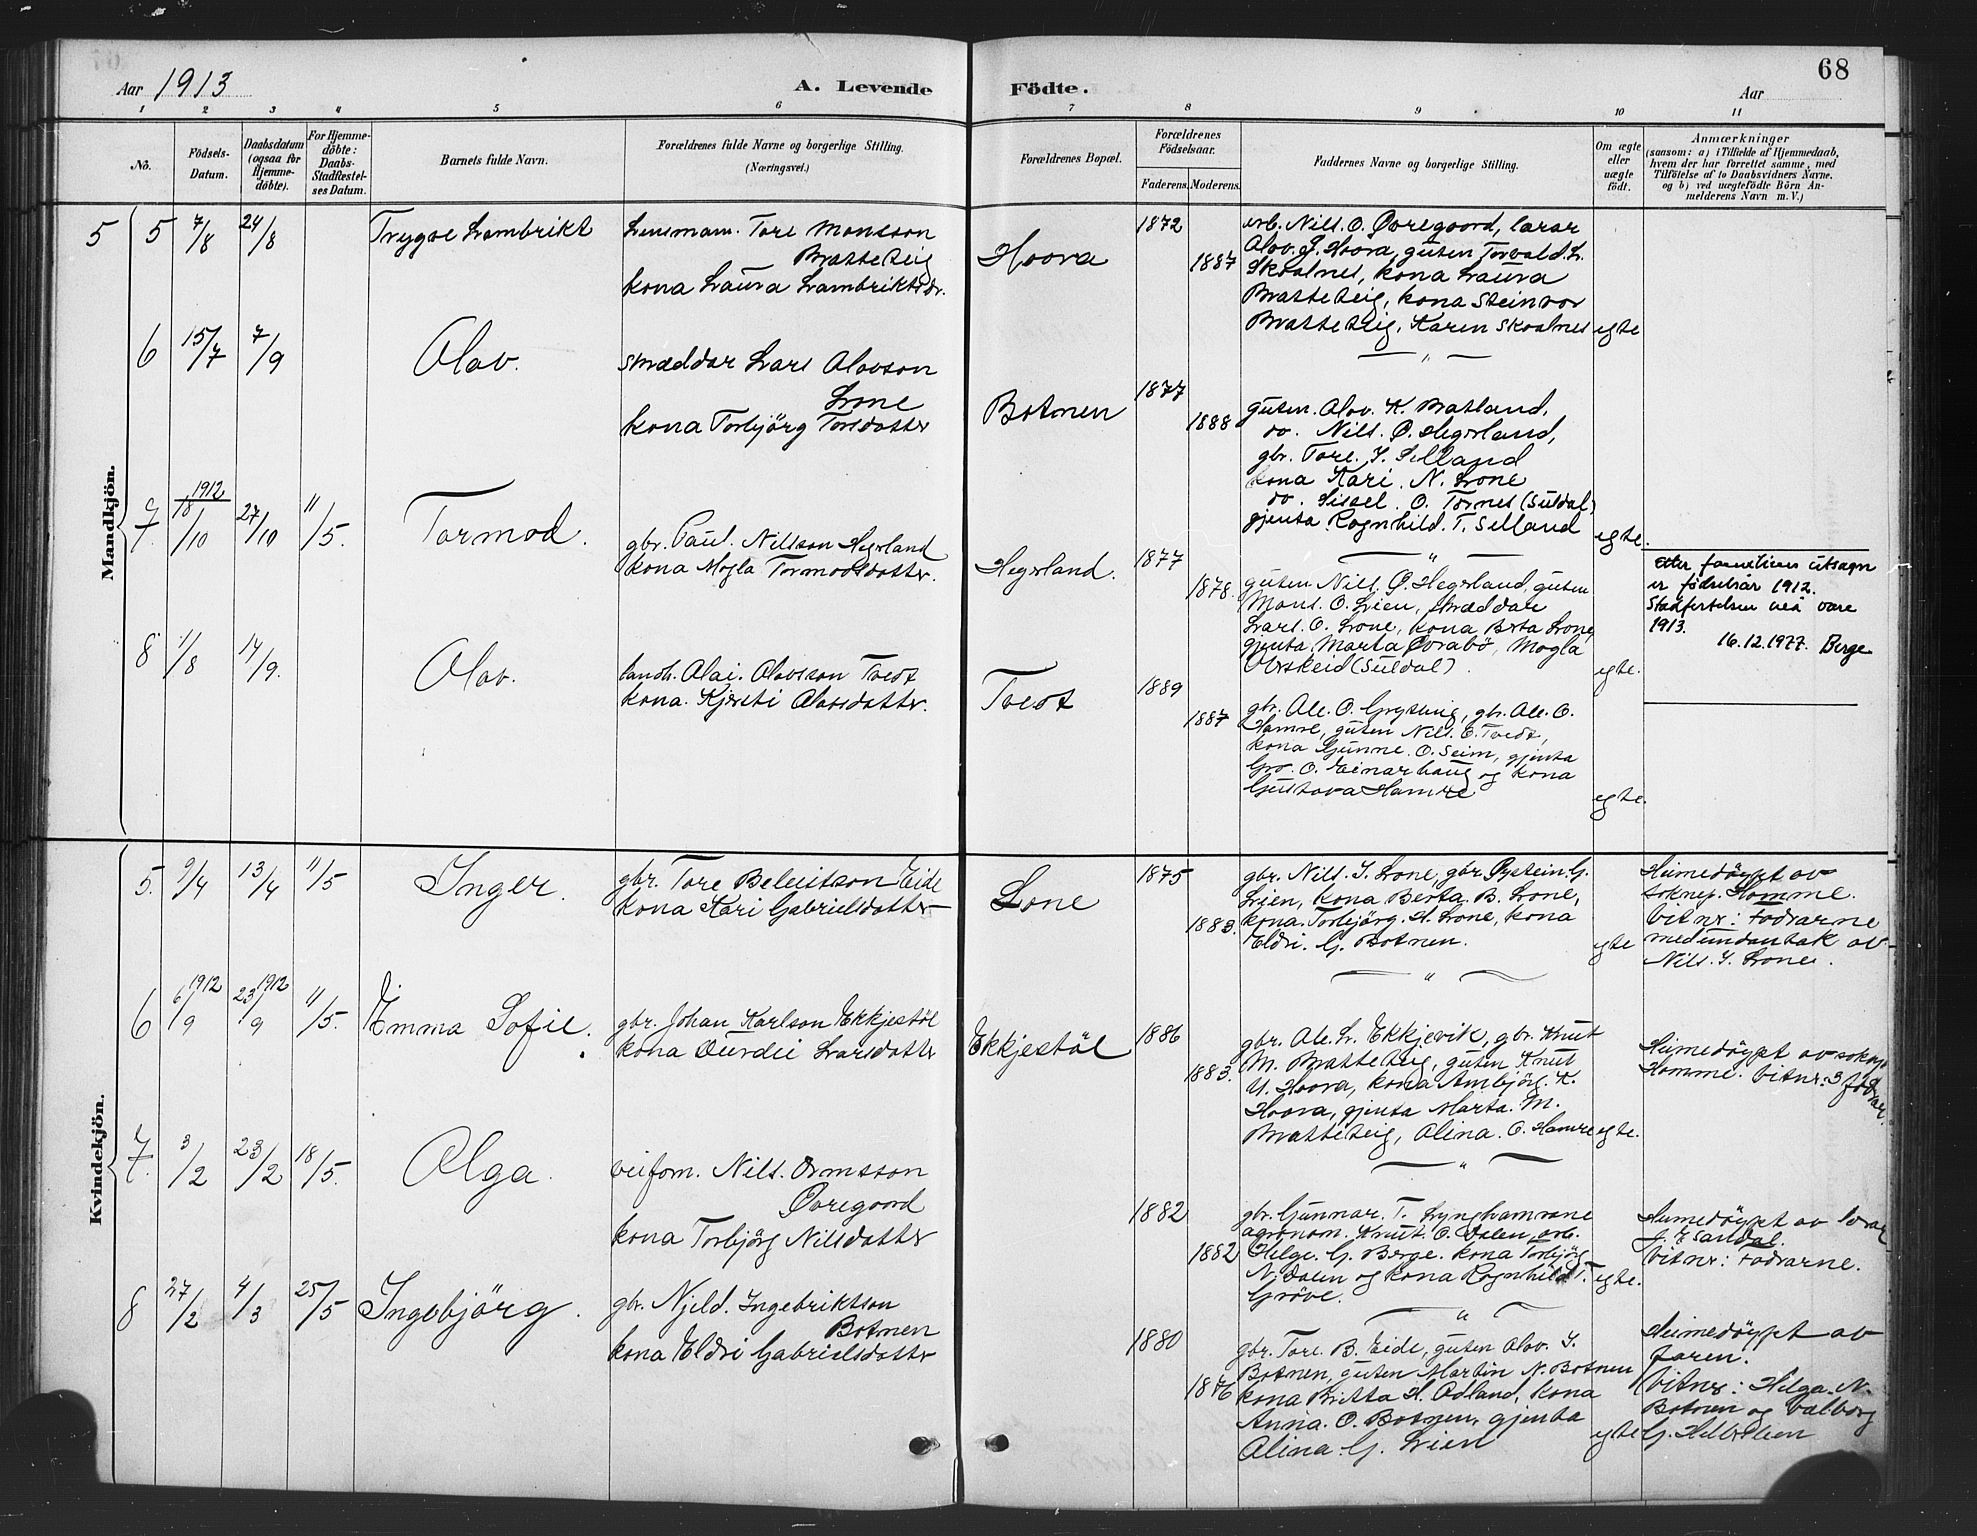 68
Aar 1913
A. Levende Födte.
Aar
1 2 3 4 5 6 7 8 9 10 11
No.
Födsels-Datum.
Daabsdatum (ogsaa for Hjemme-döbte).
For Hjemme-döbte: Daabs-Stadfæstel-ses Datum.
Barnets fulde Navn.
Forældrenes fulde Navne og borgerlige Stilling.
(Næringsvei.)
Forældrenes Bopæl.
Forældrenes Födselsaar.
Faderens. Moderens.
Faddernes Navne og borgerlige Stilling.
Om ægte eller uægte födt.
Anmærkninger
(saasom: a) i Tilfælde af Hjemmedaab,
hvem der har forrettet samme, med
Tilföielse af to Daabsvidners Navne.
og b) ved uægtefödte Börn An-
melderens Navn m. V.)
Mandkjön.
5 5 7/8 24/8
Trygve Lambrikt
Lensmam. Tore Monsson
Bratteteig
kona Laura Lambriktsdr.
Hoora
1872
1887
arb. Nils. O. Øvregoord, lærar
Olov. J. Hoora, guten Torvald. L.
Skoalnes, kona Laura
Bratteteig, kona Steinvor
Bratteteig, Karen Skoalnes
egte
6 15/7 7/9
Olav.
skræddar Lars Olavson
Lone
kona Torbjörg Torsdotter
Botnen
1877
1888
guten. Olov. K. Bratland,
do. Nils. O. Hegerland,
gbr. Tore. J. Selland
kona Kari. N. Lone
do. Sissel. O. Tornes (Suldal)
gjenta Rognhild. T. Selland
egte.
7. 1912 18/10 27/10 11/5.
Tormod.
gbr. Paul. Nilsson Hegerland
kona Mogla Tormodsdotter.
Hegerland.
1877
1878.
guten Nils. O. Hegerland, guten
Mons. O. Lien, skræddare
Lars. O. Lone, kona Brta Lone,
gjenta Marta Øvrabö, Mogla
Orskeid (Suldal).
egte.
Etter familiens utsagn
er födselsår 1912.
Stadfestelsen må være
1913.
16.12.1977. Berge
8 1/8 14/9.
Olav.
landh. Olai. Olavsson Tvedt
kona. Kjersti Olavsdotter.
Tvedt
1889
1887
gbr. Ole. O. Grytnig, gbr. Ole. O.
Hamre, guten Nils. E. Tvedt,
kona Gunne. O. Seim, gjenta
Gro. O. Einarhaug og kona
Gustava Hamre
egte.
Kvindekjön.
5. 9/4 13/4 11/5
Inger.
gbr. Tore Beleitsson Eide
kona Kari Gabrielsdotter
Lone
1875
1883.
gbr. Nils. J. Lone, gbr Øystein. G.
Lien, kona Berta. B. Lone,
kona Torbjörg. H. Lone, kona
Eldri. G. Botnen.
egte
Heimedöypt av
soknep. Homme.
Vitnr: Fodrarne
med undantak av
Nils. J. Lone.
6 1912 6/9 1912 23/9 11/5.
Emma Sofie.
gbr. Johan Karlson Ekkjestöl
kona Durdei Larsdotter
Ekkjestöl
1886
1883.
gbr. Ole. L. Ekkjevik, gbr. Knut
M. Bratteteig, guten Knut
U. Hoora, kona Ambjörg. K.
Hoora, gjenta Marta. M.
Bratteteig, Olina. O. Hamre
egte.
Heimedöypt av soknep
Homme. Vitnr: 3 fodrar.
7. 3/2 23/2 18/5.
Olga.
veiform. Nils. Ormsson
Øvregoord
kona Torbjörg Nilsdotter
1882
1882
gbr. Gunnar. T. Lynghamrane
agronom. Knut. O. Dalen, arb.
Helge. G. Berge. kona Torbjörg
N. Dalen og kona Rognhild T.
Gröve.
egte.
Heimedöypt av lærar
J. E. Saudal.
Vitnr: Fodrarne.
8 27/2 4/3 25/5
Ingebjörg.
gbr. Njeld. Ingebriktson
Botnen
kona Eldri Gabrielsdotter
1880
1876
gbr. Tore. B. Eide, guten Olov. J.
Botnen, guten Martin N. Botnen
kona Britta H. Odland, kona
Anna. O. Botnen, gjenta
Olina. G. Lien
egte
Heimedöypt av
faren.
Vitnr: Helga. N.
Botnen og Valborg
G.